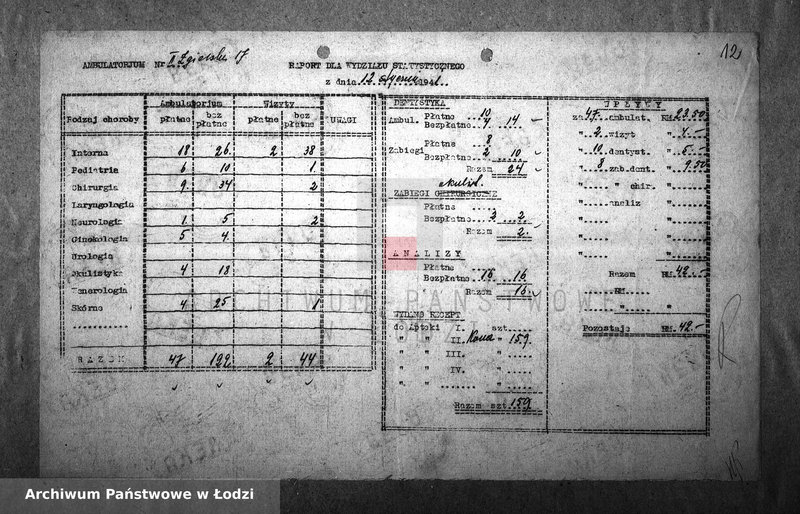 12
AMBULATORJUM Nr I Zgierska 17
RAPORT DLA WYDZIAŁU STATYSTYCZNEGO
z dnia 12 stycznia 1941.
Rodzaj choroby Ambulatorium Wizyty UWAGI
płatne bez płatne płatne bez płatne
Interna 18 26 2 38
Pediatria 6 10 1
Chirurgia 9 34 2
Laryngologia
Neurologia 1 5 2
Ginekologia 5 4
Urologia
Okulistyka 4 18
Wenerologia
Skórne 4 25 1
RAZEM 47 122 2 44
DENTYSTYKA
Ambul. Płatne 10
Bezpłatne 4 14 -
Zabiegi Płatne 8
Bezpłatne 2 10 -
Razem 24 -
okulist.
ZABIEGI CHIRURGICZNE
Płatne
Bezpłatne 2
Razem 2.
ANALIZY
Płatne
Bezpłatne 16 16
Razem 16 -
WYDANO RECEPT
do Apteki I. szt.
" " II. Kasa " 159.
" " III. "
" " IV. "
" " "
Razem szt. 159
WPŁYWY
za 47 ambulat. RM. 23.50
" 2 wizyt " 4.-
" 10 dentyst. " 5.-
" 8 zab.dent. " 9.50
" " chir. "
" analiz "
" "
" "
Razem RM. 42.-
" RM. "
" "
Pozostaje RM. 42.-
ARCHIWUM PAŃSTWOWE
W ŁODZI
Archiwum Państwowe w Łodzi